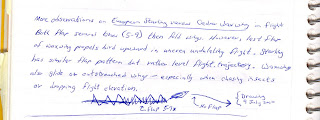 More observations on European Starling versus Cedar Waxwing in flight
Both flap several times (5-9) then fold wings. However, last flap
of waxwing propels bird upward in uneven undulating flight. Starling
has similar flap pattern but rather level flight trajectory. Waxwings
also glide on outstretched wings - especially when chasing insects
or dropping flight elevation.
Flap 5-9x
No Flap
Drawing